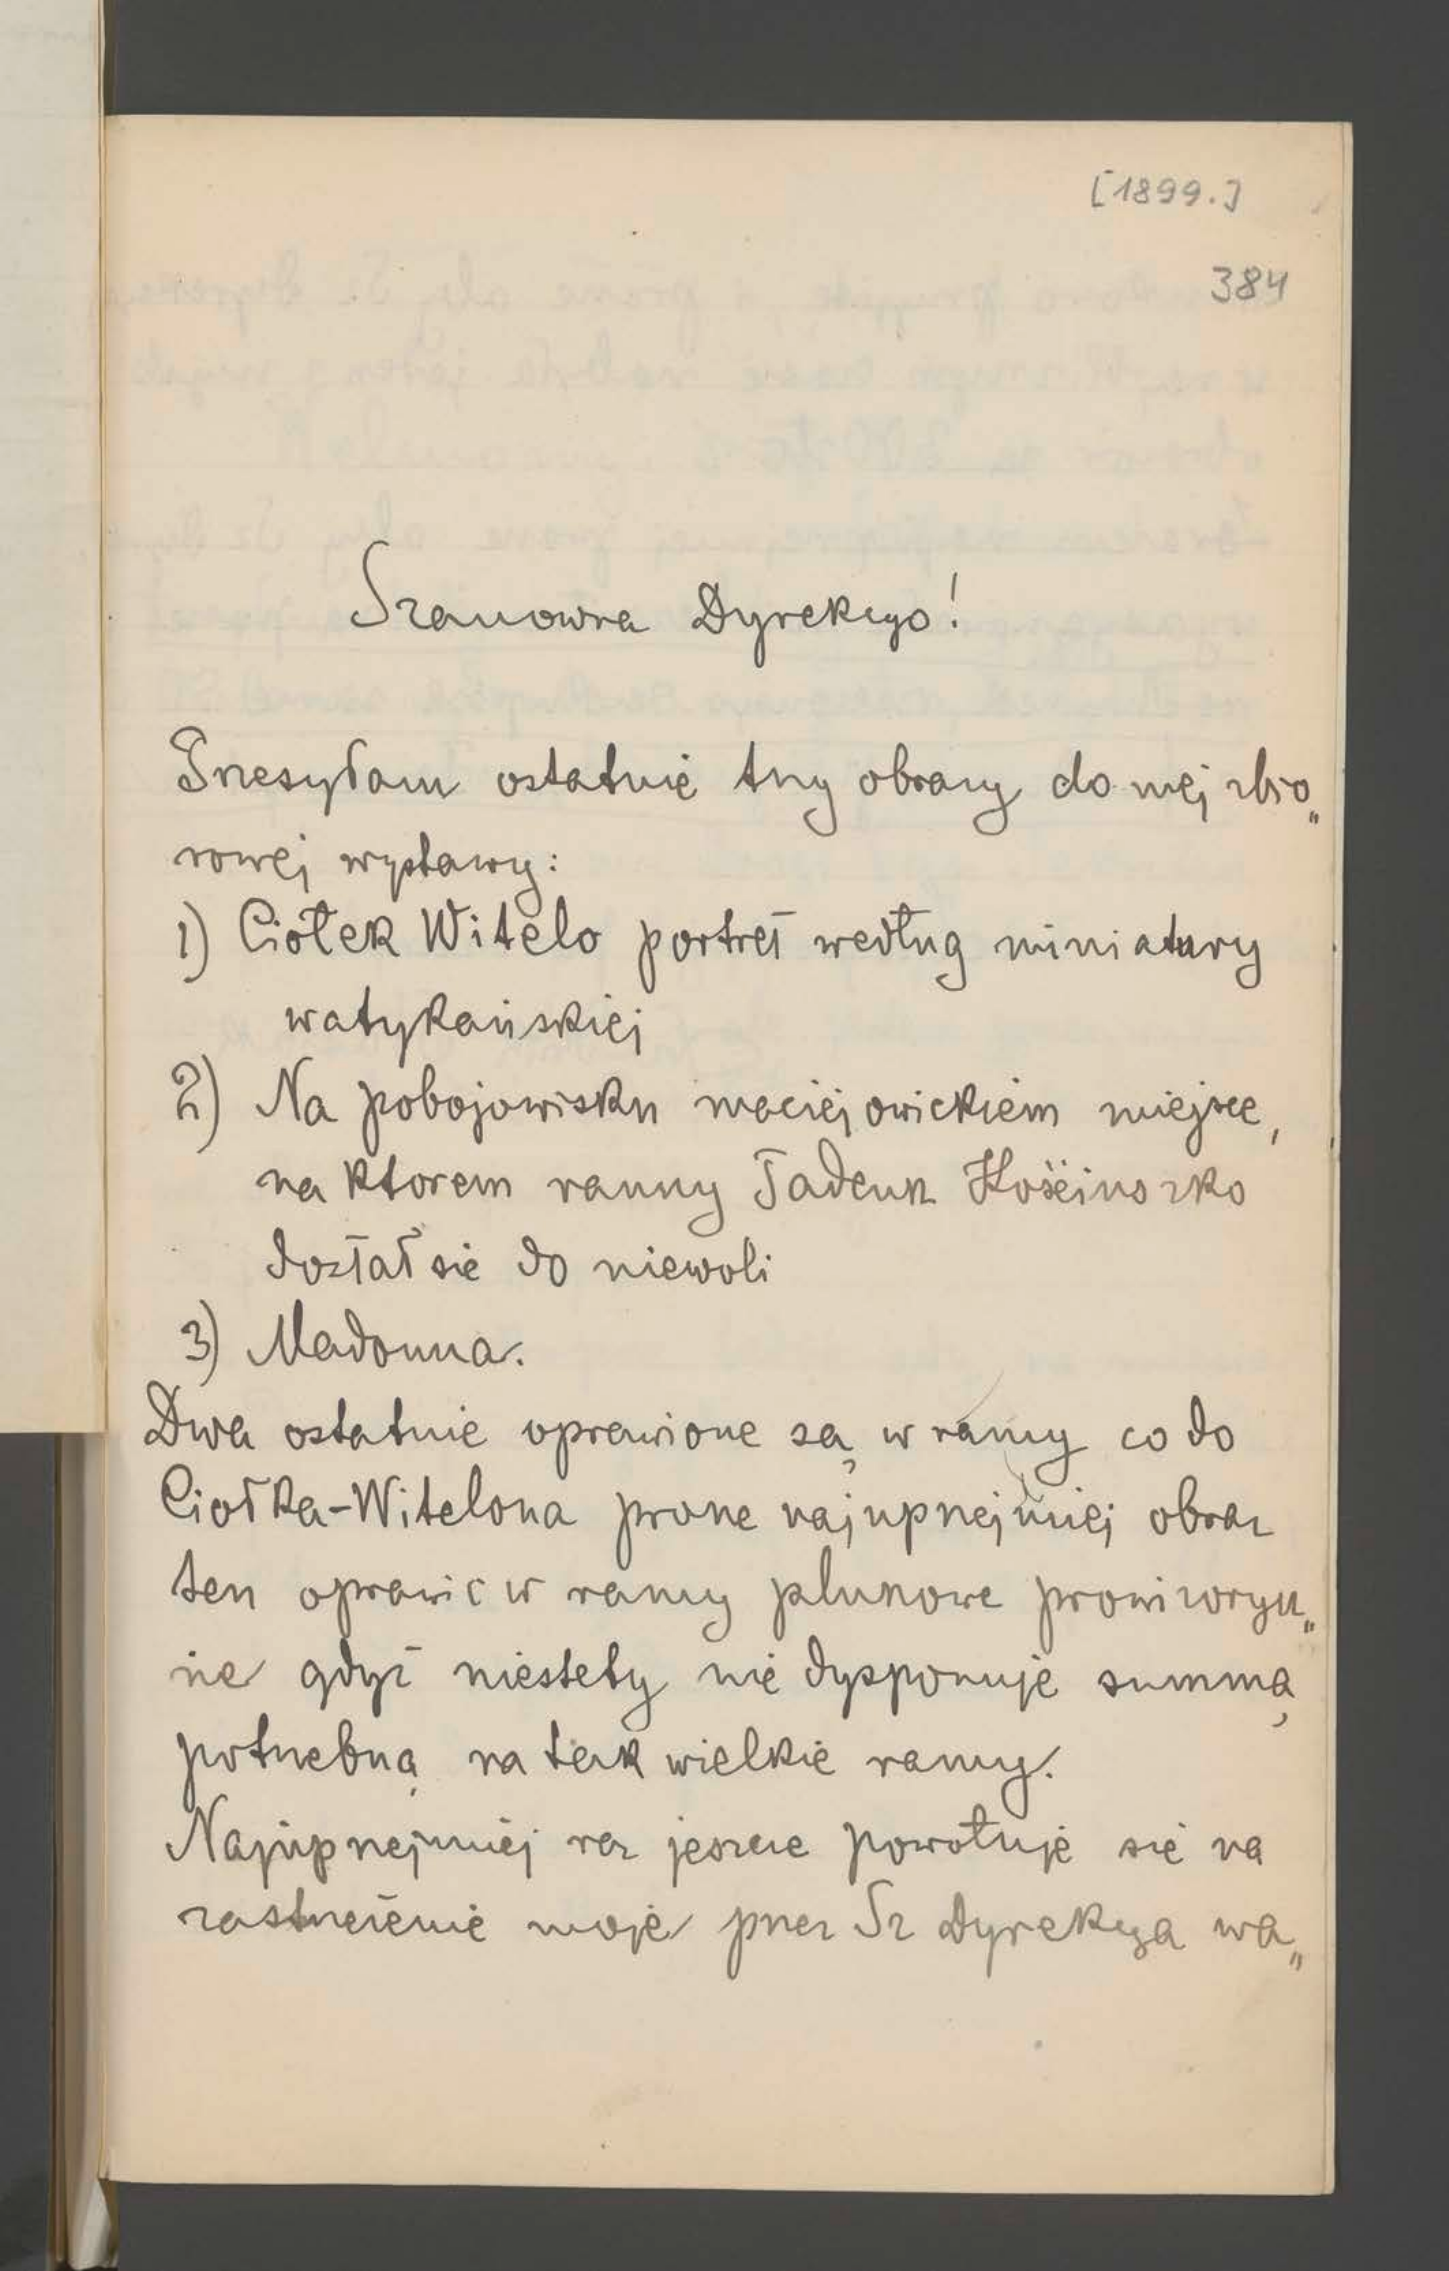 [1899.]
384
Szanowna Dyrekcyo!
Przesyłam ostatnie trzy obrazy do mej zbio„
rowej wystawy:
1) Ciołek Witelo portret według miniatury
watykańskiej
2) Na pobojowisku maciejowickiem miejsce,
na ktorem ranny Tadeusz Kościuszko
dostał się do niewoli
3) Madonna.
Dwa ostatnie oprawione są w ramy co do
Ciołka-Witelona prosze najuprzejmiej obraz
ten oprawic w ramy pluszowe prowizorycz„
nie gdyż niestety nie dysponuje summą
potrzebną na tak wielkie ramy.
Najuprzejmiej raz jeszcze powołuje się na
zastrzeżenie moje przez Sz Dyrekcya wa„